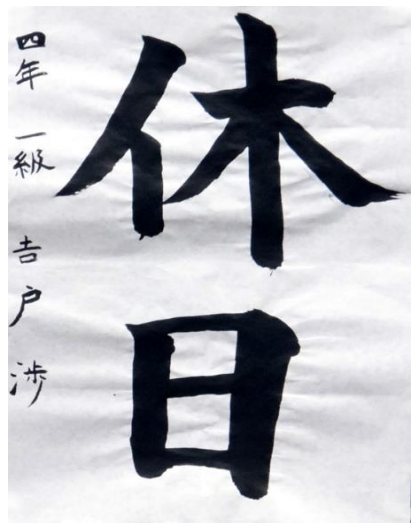 休日
四年 一級 吉戸渉